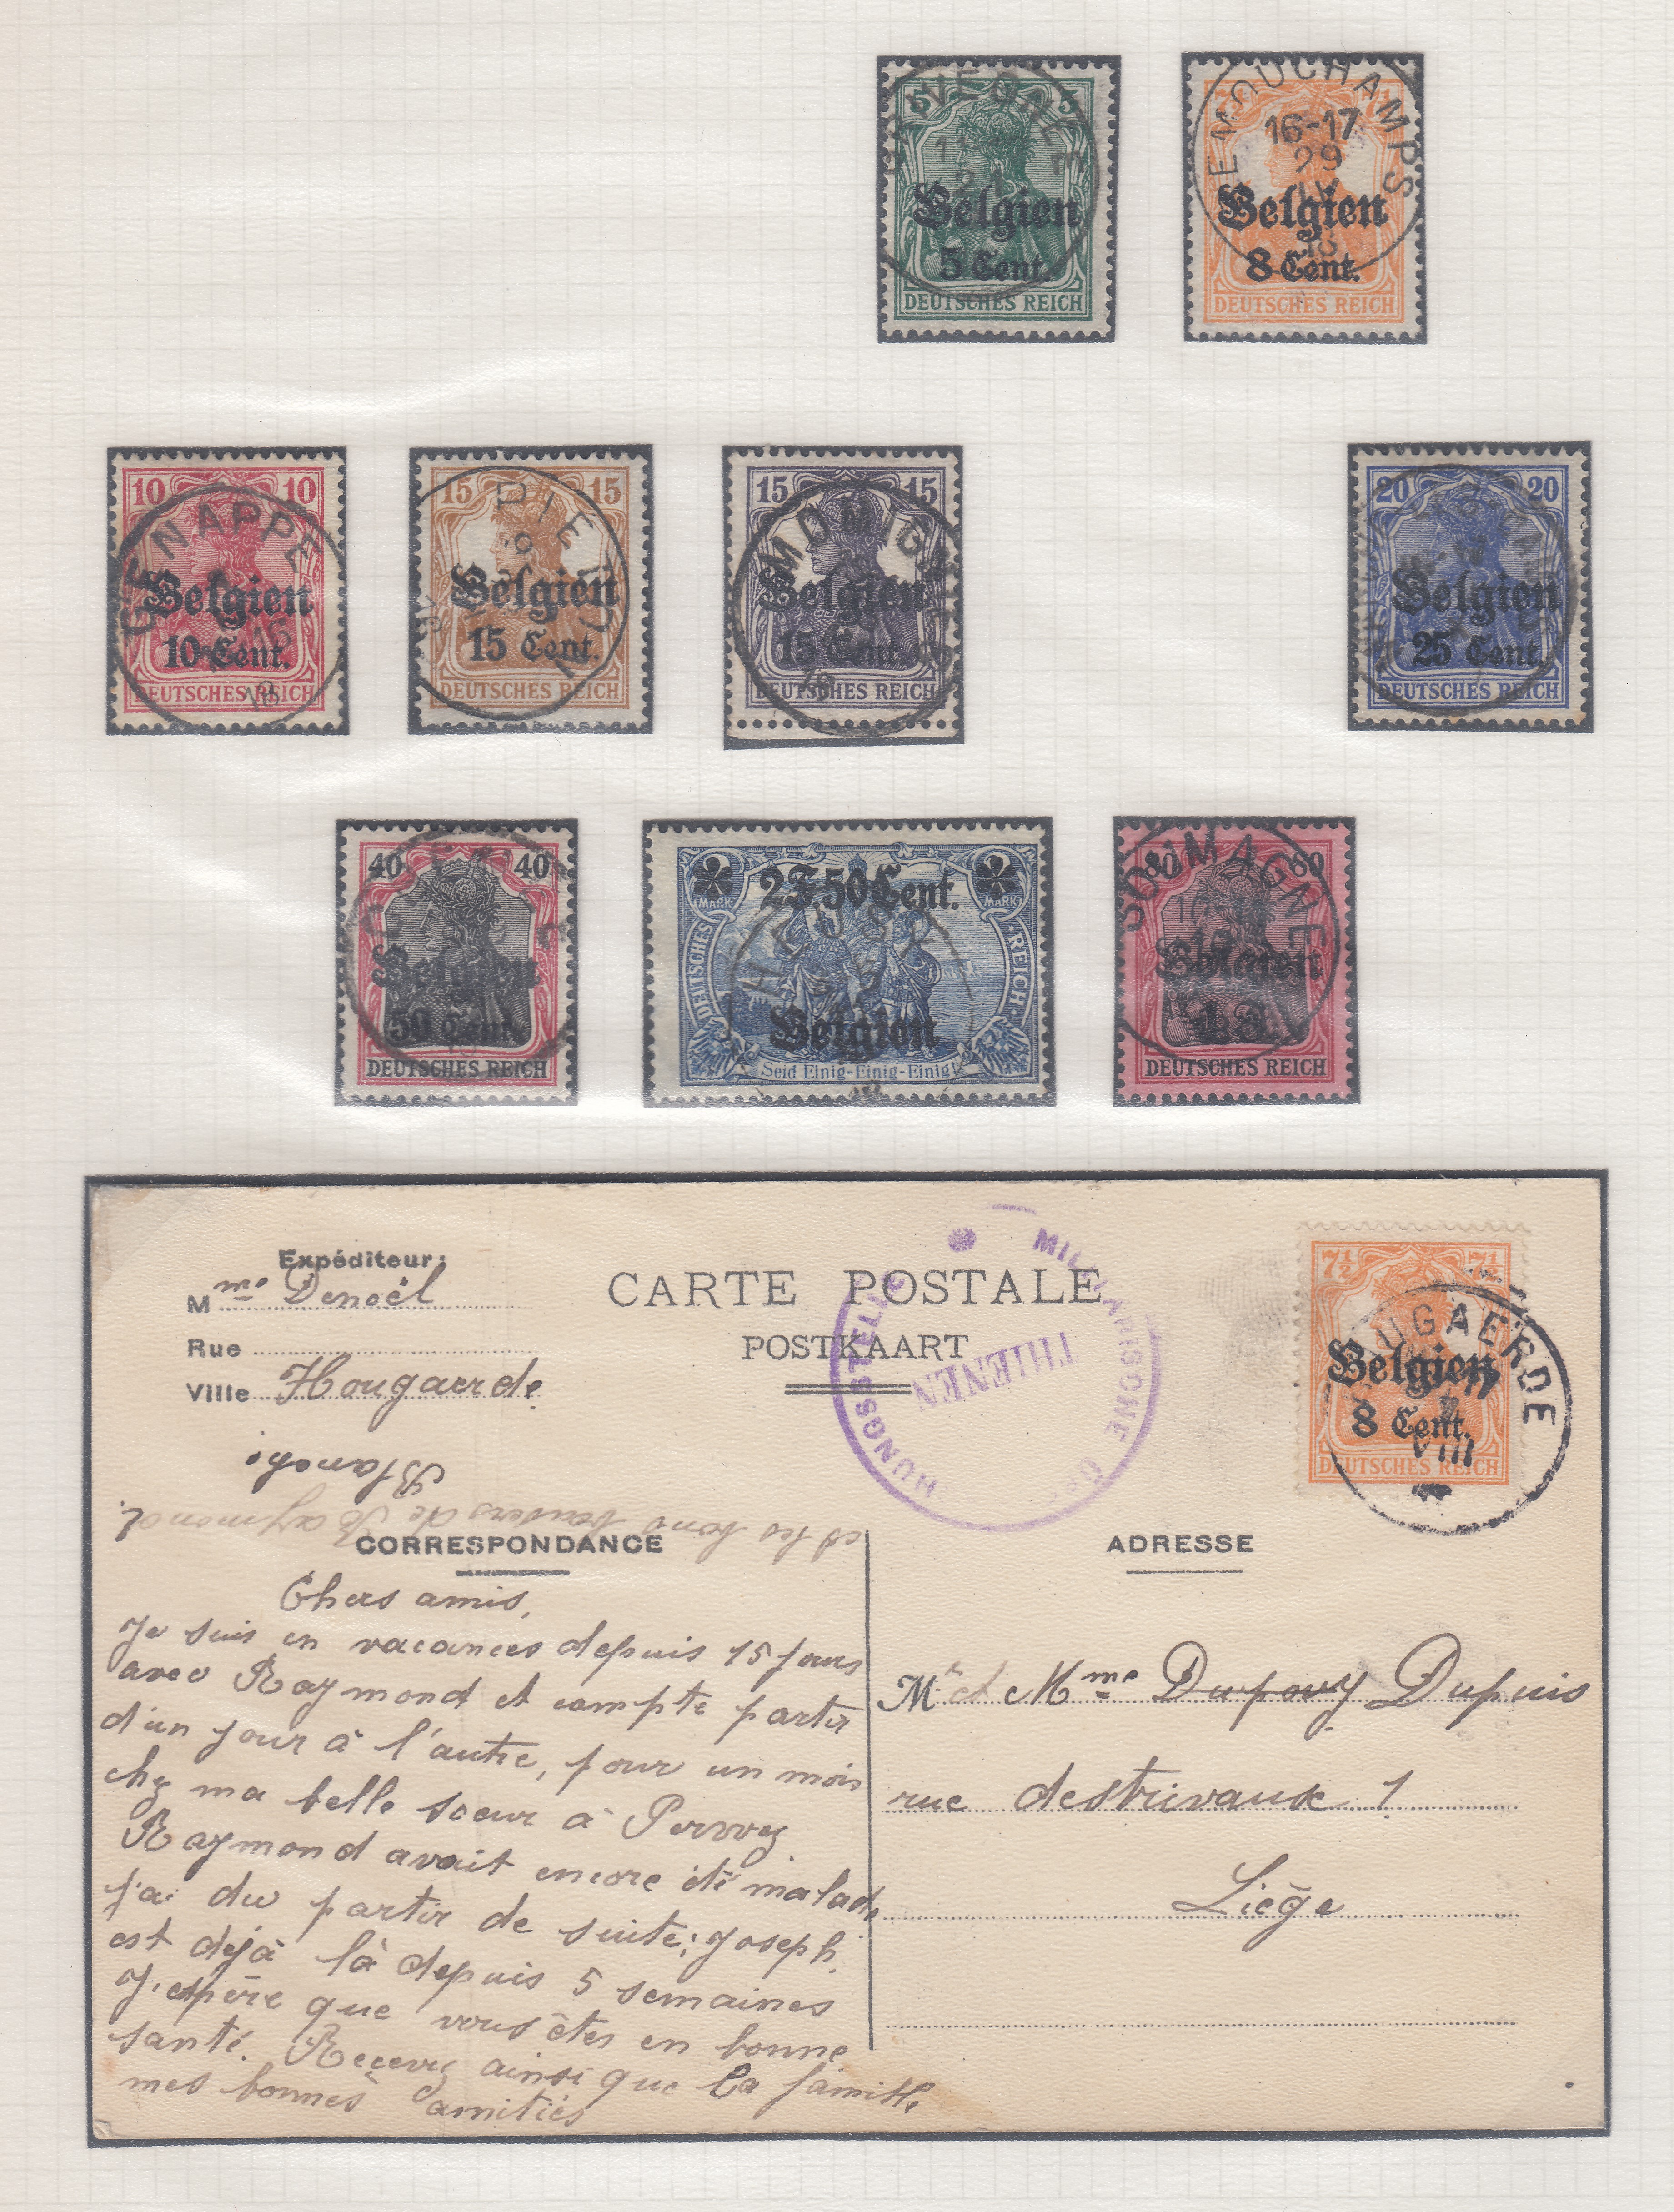 5 5
Belgien
5 Cent.
DEUTSCHES REICH
EMOUCHAMPS
16-17
29
Belgien
8 Cent.
DEUTSCHES REICH
10 10
GENAPPE
Belgien
10 Cent.
DEUTSCHES REICH
18
15 15
Belgien
15 Cent.
DEUTSCHES REICH
15 15
Belgien
15 Cent.
DEUTSCHES REICH
18
20 20
Belgien
25 Cent.
DEUTSCHES REICH
40 40
Belgien
50 Cent.
DEUTSCHES REICH
2F.50Cent.
MARK MARK
DEUTSCHES REICH
Belgien
Seid Einig-Einig-Einig!
80 80
SOUMAGNE
Belgien
1 F.
DEUTSCHES REICH
Expéditeur:
Mme Denoël
Rue
Ville Hougaerde
Blanche
et les bons baisers de Raymond.
CARTE POSTALE
POSTKAART
MILITÄRISCHE
HUNGSSTELLE
THIENEN
7½ 7½
HOUGAERDE
Belgien
8 Cent.
VIII
DEUTSCHES REICH
CORRESPONDANCE
Chers amis,
Je suis en vacances depuis 15 jours
avec Raymond et compte partir
d'un jour à l'autre, pour un mois
chez ma belle soeur à Perwez
Raymond avait encore été malade
j'ai du partir de suite; Joseph
est déjà là depuis 5 semaines
J'espère que vous êtes en bonne
santé. Recevez ainsi que la famille
mes bonnes amitiés
ADRESSE
Mr et Mme Dupouy Dupuis
rue destrivaux 1
Liège